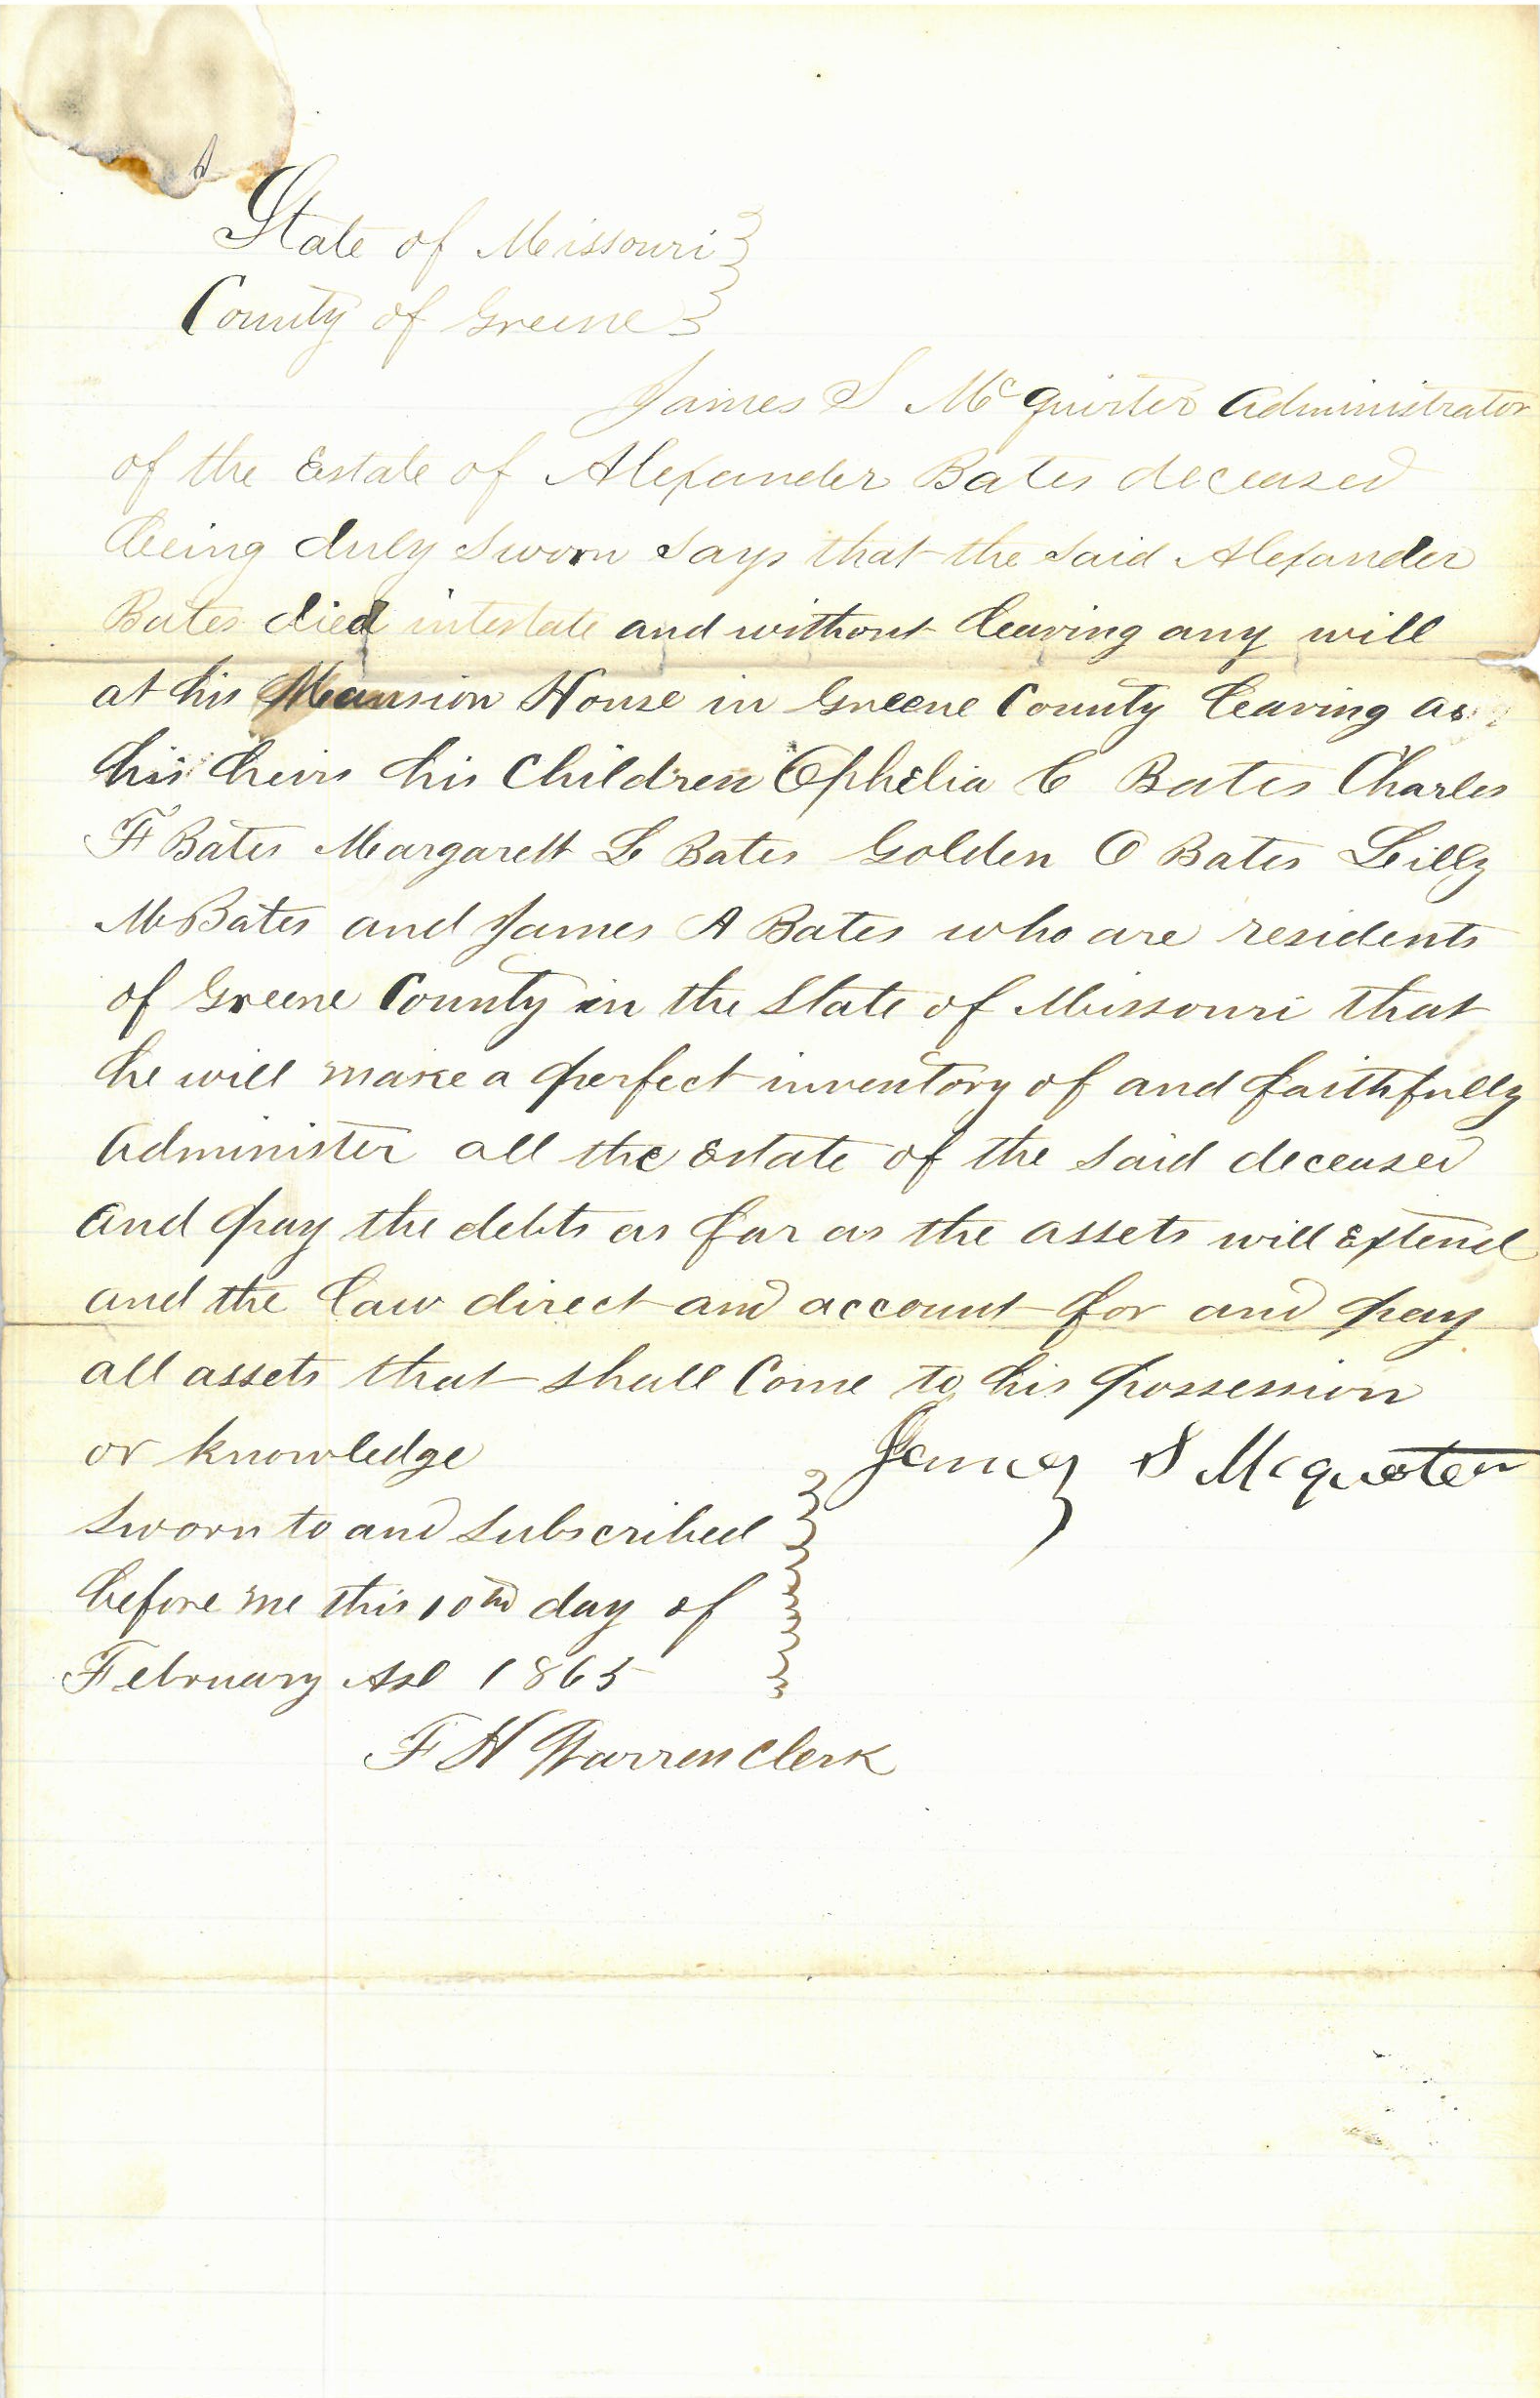 State of Missouri
County of Greene
James S McQuirter Administrator
of the Estate of Alexander Bates deceased
being duly sworn says that the said Alexander
Bates died intestate and without leaving any will
at his Mansion House in Greene County leaving as
his heirs his Children Ophelia C Bates Charles
F Bates Margarett L Bates Golden O Bates Lilly
M Bates and James A Bates who are residents
of Greene County in the State of Missouri that
he will make a perfect inventory of and faithfully
Administer all the Estate of the said deceased
and pay the debts as far as the assets will Extend
and the law direct and account for and pay
all assets that shall Come to his possession
or knowledge
James S Mcquoter
Sworn to and subscribed
before me this 10th day of
February AD 1865
F H Warren Clerk